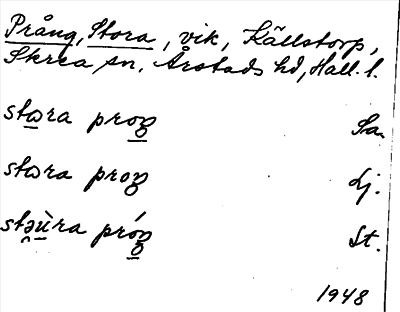 Prång, Stora, vik, Källstorp,
Skrea sn, Årstads hd, Hall. l.
stɷra proŋ Sa.
stɷra proŋ Lj.
stəùra próŋ St.
1948